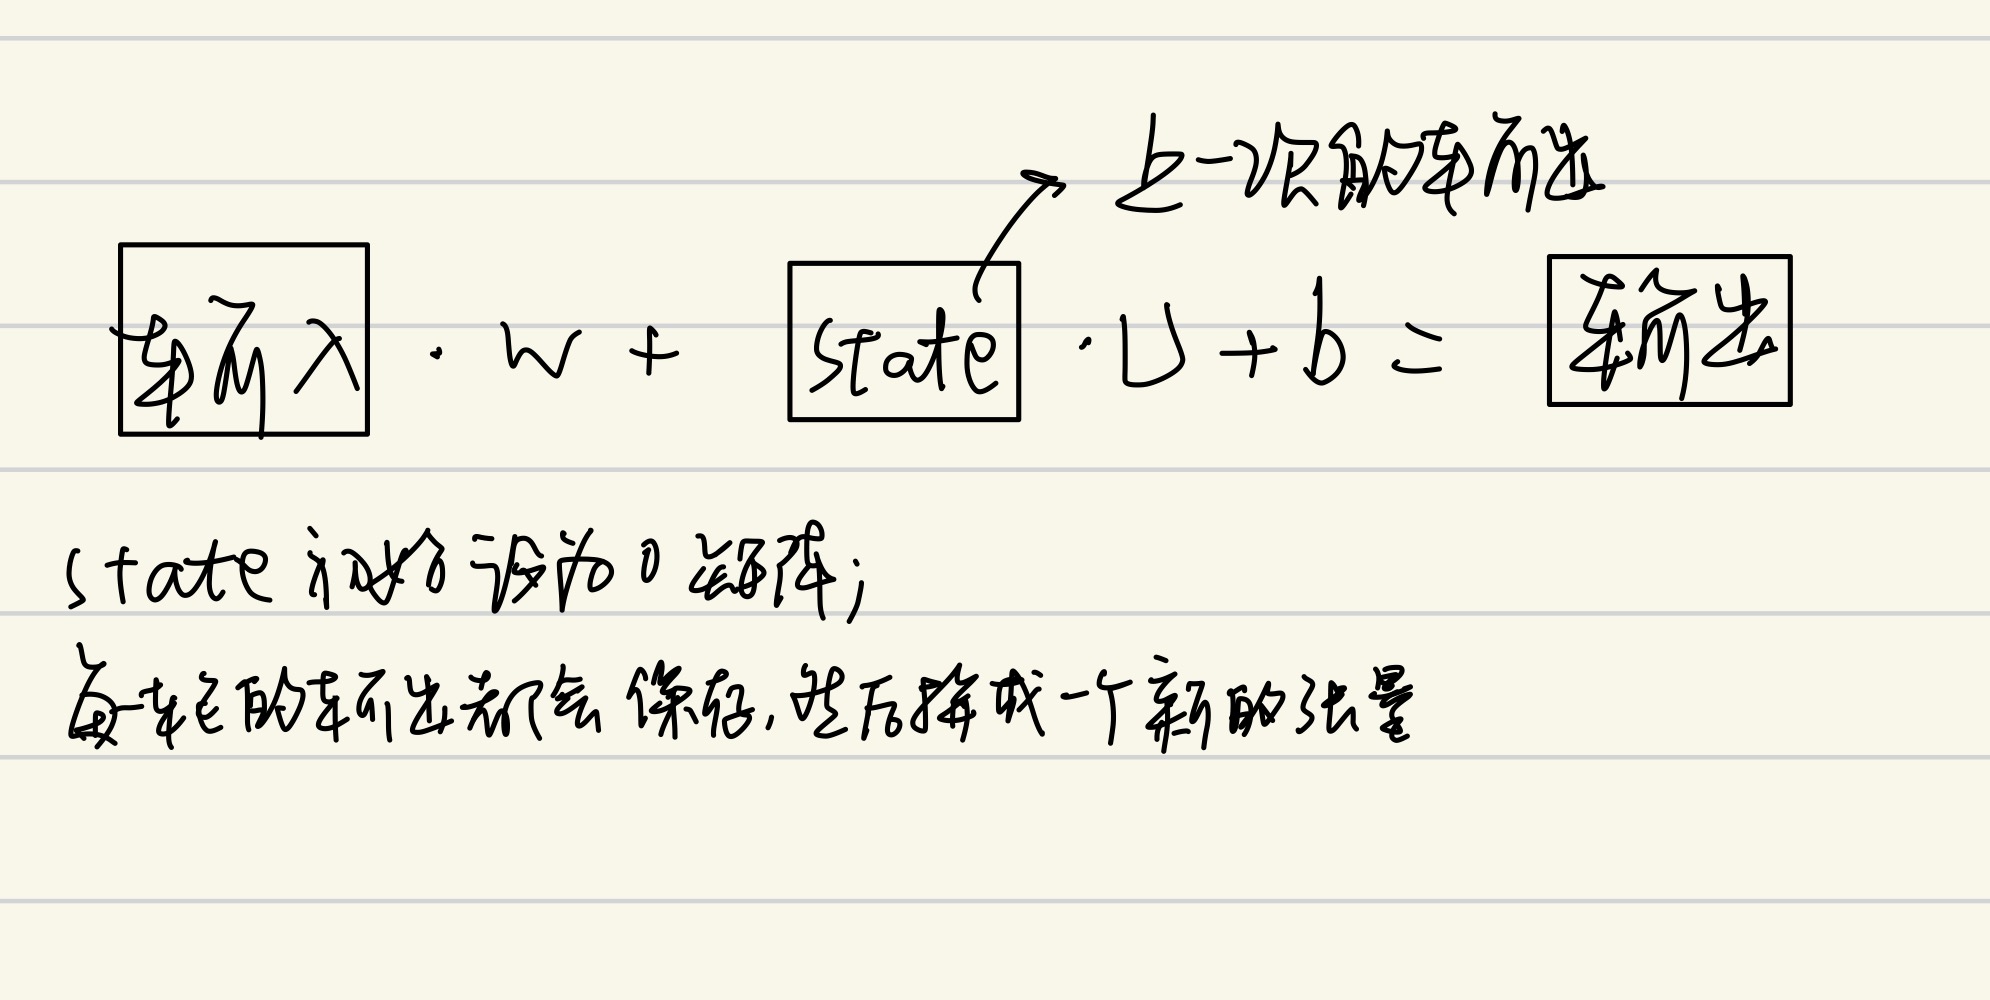 上一次的输出
输入 · w + state · U + b = 输出
state 初始设为 0 矩阵;
每一轮的输出都会保存,然后拼成一个新的张量